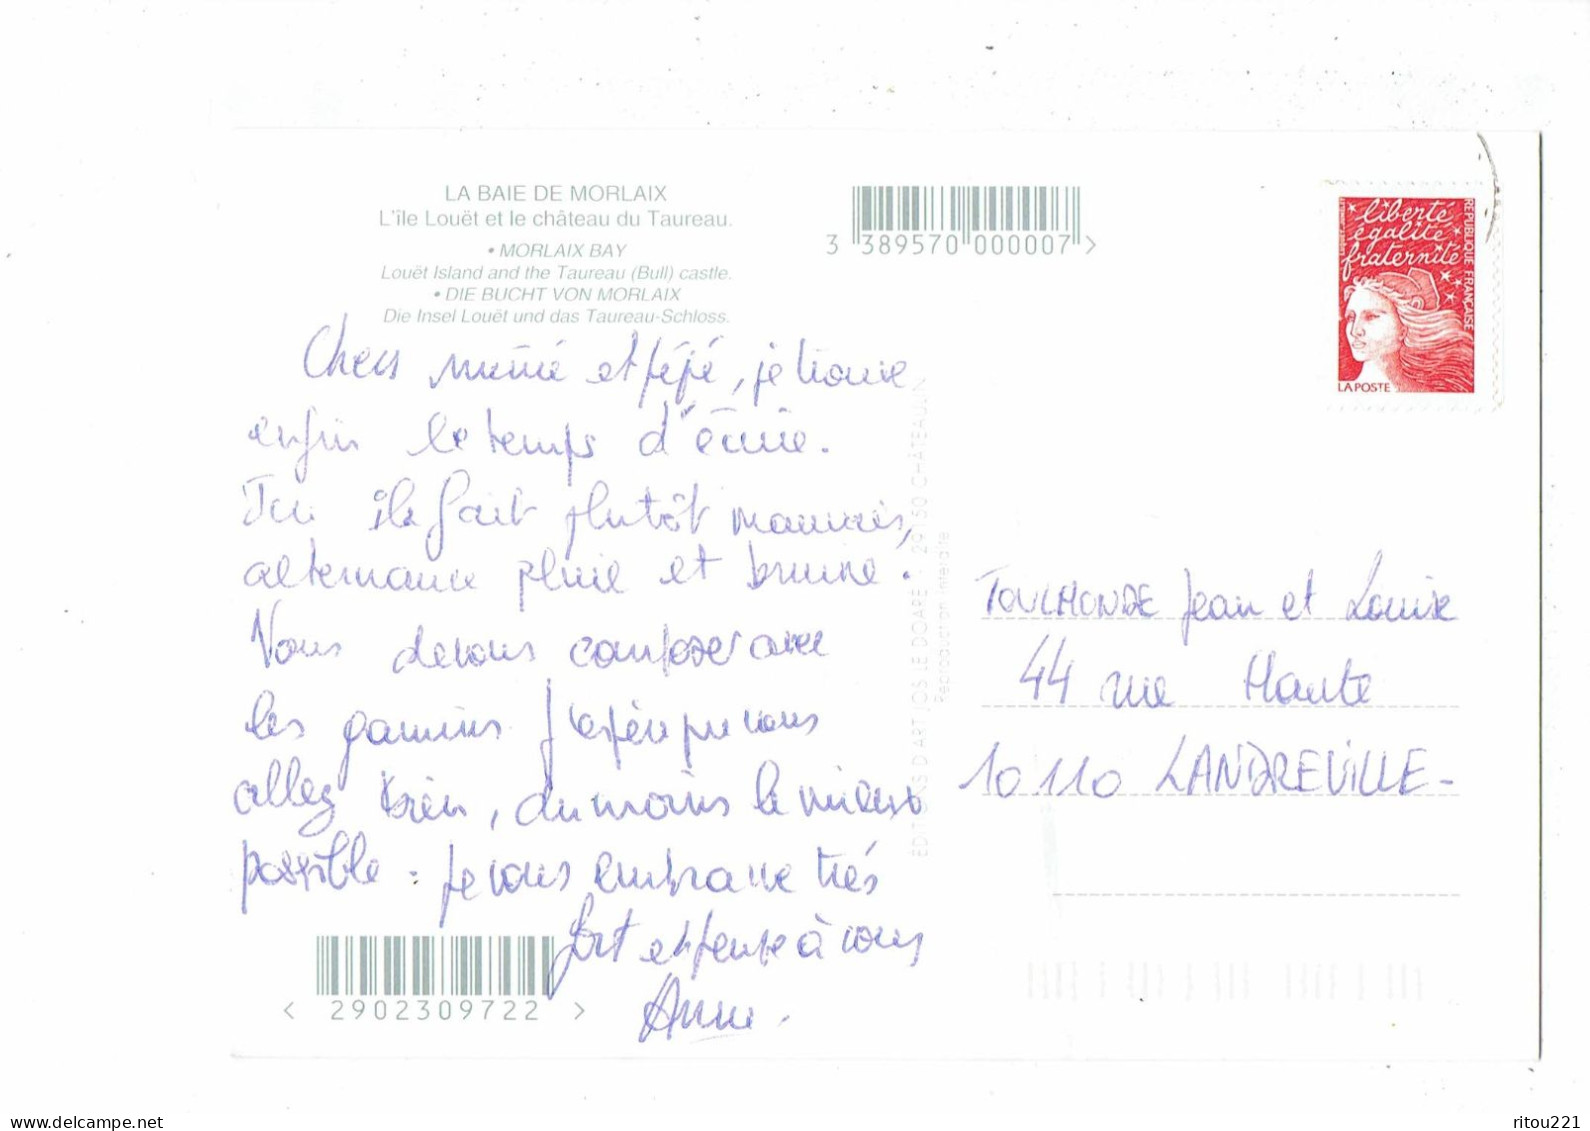 LA BAIE DE MORLAIX
L'île Louët et le château du Taureau.
• MORLAIX BAY
Louët Island and the Taureau (Bull) castle.
• DIE BUCHT VON MORLAIX
Die Insel Louët und das Taureau-Schloss.
3 389570 000007 >
liberté
égalité
fraternité
REPUBLIQUE FRANÇAISE
LA POSTE
Chers mémé et pépé, je trouve
enfin le temps d'écrire.
Ici il fait plutôt mauvais,
alternance pluie et bruine.
Nous devons composer avec
les gamins. J'espère que vous
allez bien, du moins le mieux
possible. Je vous embrasse très
fort et pense à vous
Anne.
EDITIONS D'ART JOS LE DOARE - 29150 CHÂTEAULIN
Reproduction interdite
TOULMONDE Jean et Louise
44 rue Haute
10110 LANDREVILLE -
< 2902309722 >
ritou221